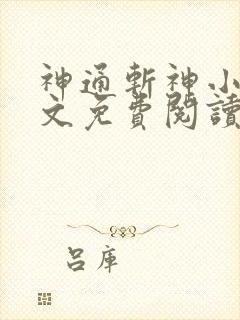 神通斬神小
文免費閱讀
呂庫